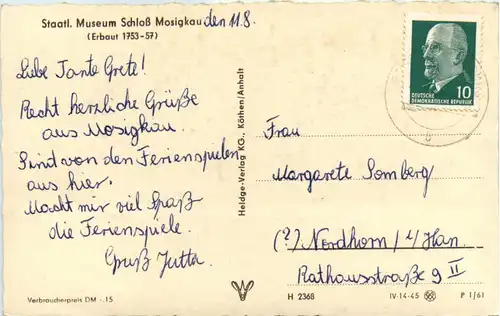 Staatl. Museum Schloß Mosigkau
(Erbaut 1753-57)
den 11.8.
Liebe Tante Grete!
Recht herzliche Grüße
aus Mosigkau.
Sind von den Ferienspielen
aus hier.
Macht mir viel Spaß
die Ferienspiele.
Gruß Jutta.
Verbraucherpreis DM -.15
Heldge-Verlag KG., Köthen/Anhalt
10
DEUTSCHE
DEMOKRATISCHE REPUBLIK
Frau
Margarete Somberg
(?) Nordhorn / i/ Han.
Rathausstraße 9 II
H 2368
IV-14-45
P 1/61